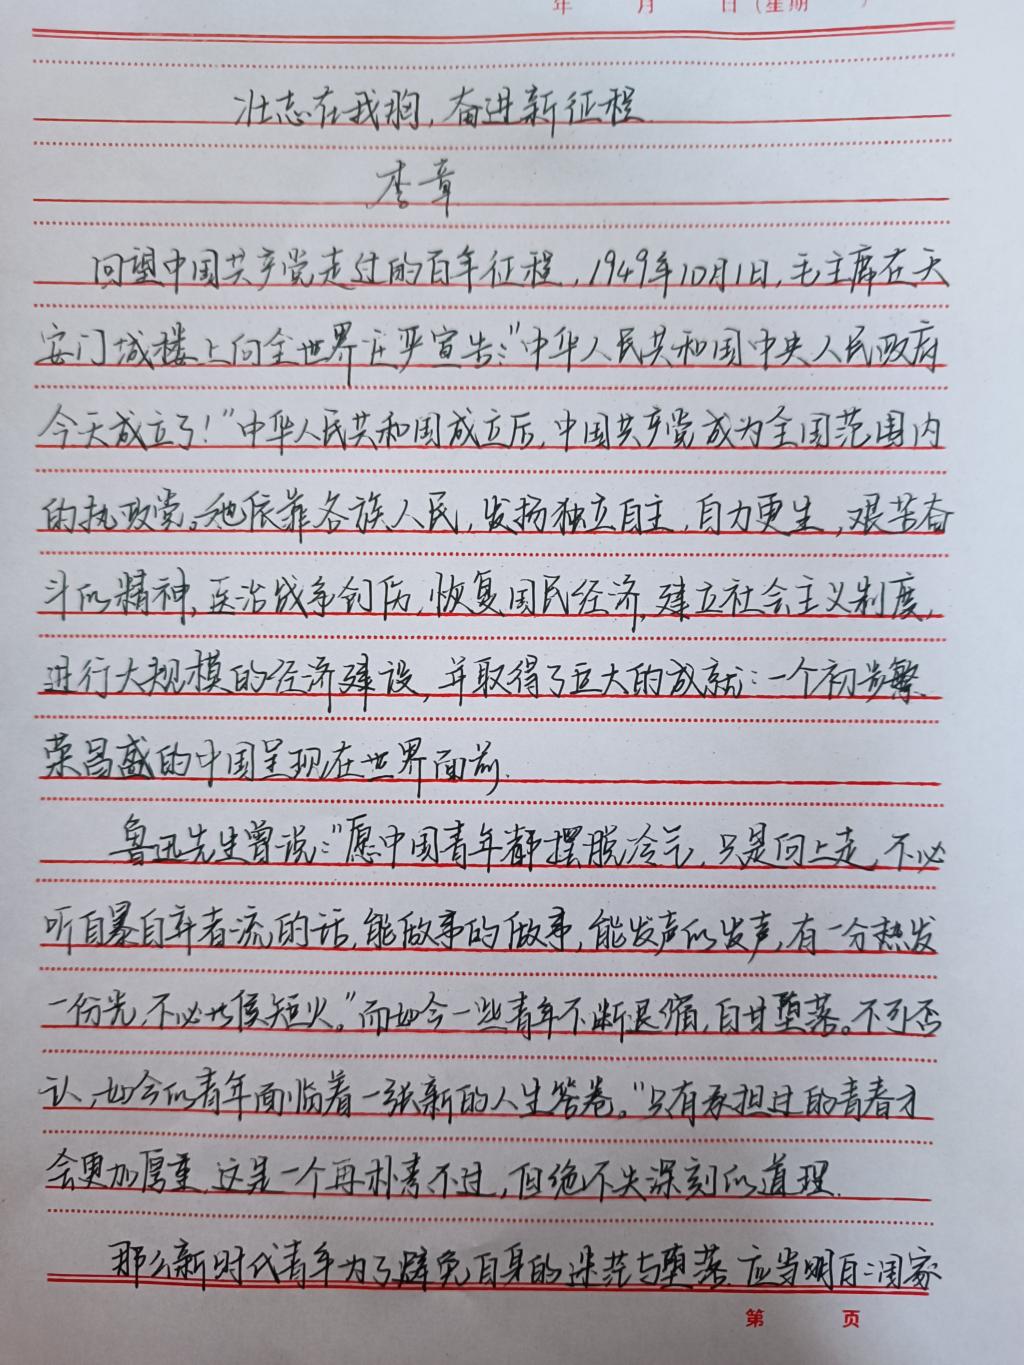 年 月 日（星期 ）
壮志在我胸，奋进新征程
李章
回望中国共产党走过的百年征程，1949年10月1日，毛主席在天
安门城楼上向全世界庄严宣告："中华人民共和国中央人民政府
今天成立了！"中华人民共和国成立后，中国共产党成为全国范围内
的执政党。他依靠各族人民，发扬独立自主，自力更生，艰苦奋
斗的精神，医治战争创伤，恢复国民经济，建立社会主义制度，
进行大规模的经济建设，并取得了巨大的成就：一个初步繁
荣昌盛的中国呈现在世界面前.
鲁迅先生曾说："愿中国青年都摆脱冷气，只是向上走，不必
听自暴自弃者流的话，能做事的做事，能发声的发声，有一分热发
一份光，不必等候炬火。"而如今一些青年不断退缩，自甘堕落。不可否
认，如今的青年面临着一张新的人生答卷。"只有承担过的青春才
会更加厚重，这是一个再朴素不过，但绝不失深刻的道理.
那么新时代青年为了避免自身的迷茫与堕落，应当明白：国家
第 页